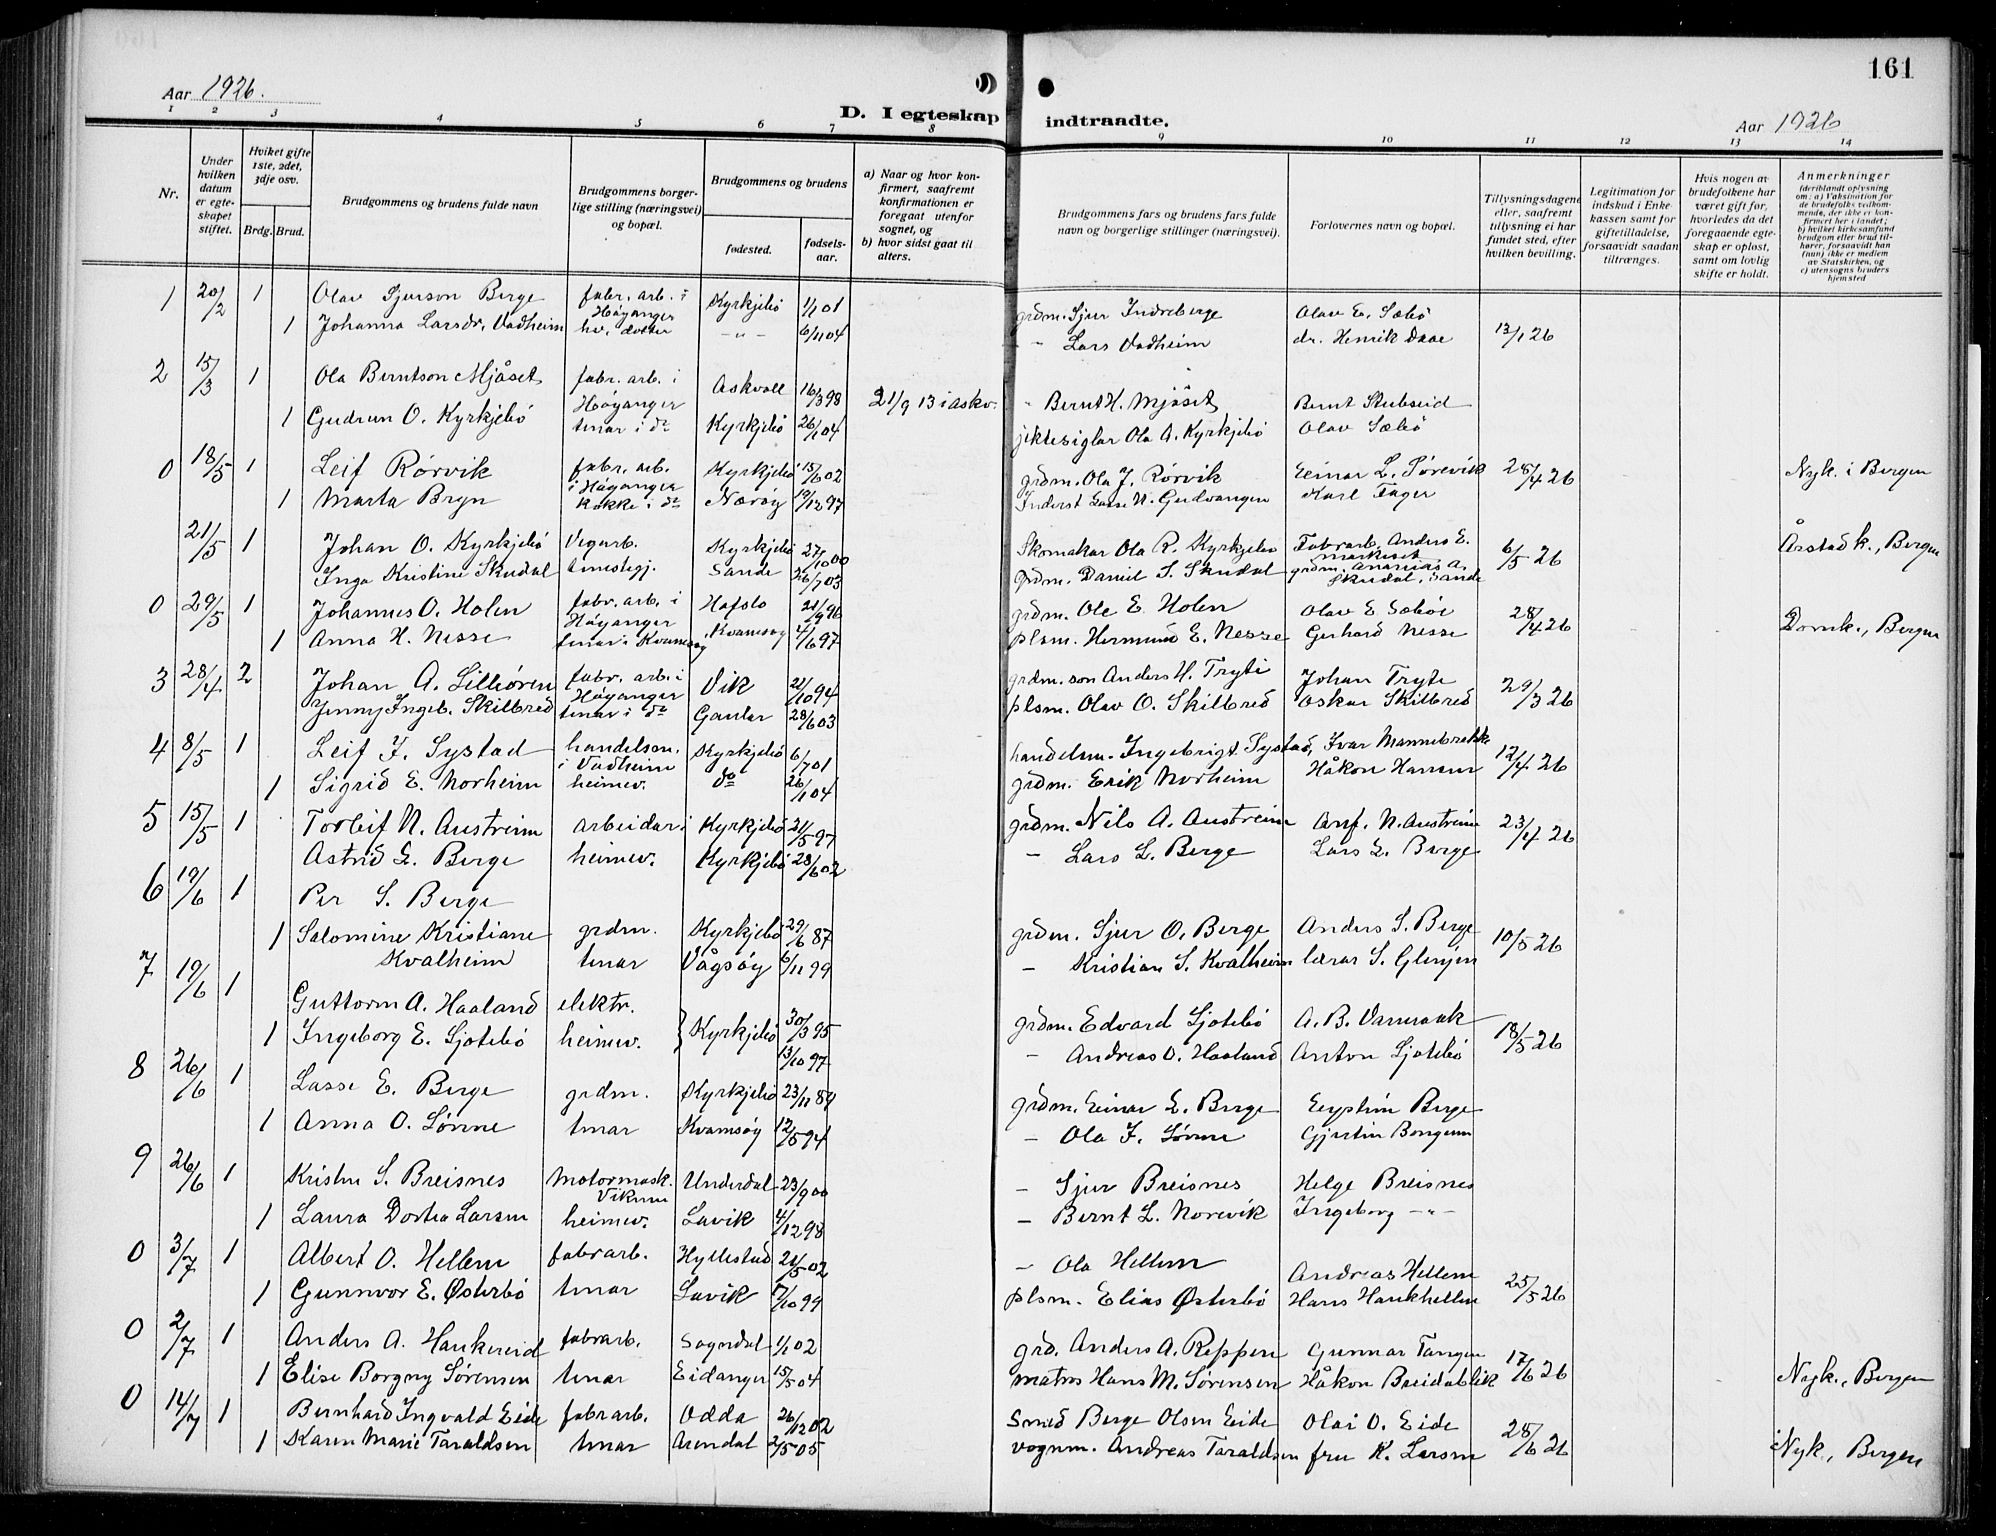 161
Aar 1926.
D. I egteskap indtraadte.
Aar 1926
1 2 3 4 5 6 7 8 9 10 11 12 13 14
Nr.
Under hvilken datum er egteskapet stiftet.
Hvilket gifte 1ste, 2det, 3dje osv.
Brdg. Brud.
Brudgommens og brudens fulde navn
Brudgommens borgerlige stilling (næringsvei) og bopæl.
Brudgommens og brudens
fødested.
fødselsaar.
a) Naar og hvor konfirmert, saafremt konfirmationen er foregaat utenfor sognet, og
b) hvor sidst gaat til alters.
Brudgommens fars og brudens fars fulde navn og borgerlige stillinger (næringsvei).
Forlovernes navn og bopæl.
Tillysningsdagene eller, saafremt tillysning ei har fundet sted, efter hvilken bevilling.
Legitimation for indskud i Enkekassen samt for giftetilladelse, forsaavidt saadan tiltrænges.
Hvis nogen av brudefolkene har været gift før, hvorledes da det foregaaende egteskap er opløst, samt om lovlig skifte er holdt.
Anmerkninger (deriblandt oplysning om: a) Vaksination for de brudefolks vedkommende, der ikke er konfirmert her i landet; b) hvilket kirkesamfund brudgom eller brud tilhører, forsaavidt han (hun) ikke er medlem av Statskirken, og c) utensogns bruders hjemsted
1 20/2 1 Olav Sjurson Berge fabr. arb. i Høyanger Kyrkjebø 1/1 01 grdm. Sjur Indreberge Olav E. Sæbø
1 Johanna Larsdr. Vadheim hv. dotter -"- 6/11 04 - Lars Vadheim dr. Henrik Daae 13/1 26
2 15/3 1 Ola Berntson Mjåset fabr. arb. i Høyanger Askvoll 16/3 98 21/9 13 i Askv. - Bernt H. Mjåset Bernt Stubseid
1 Gudrun O. Kyrkjebø tenar i do Kyrkjebø 26/1 04 jektesiglar Ola A. Kyrkjebø Olav Sæbø
0 18/5 1 Leif Rørvik fabr. arb. i Høyanger Kyrkjebø 15/6 02 grdm. Ola J. Rørvik Einar L. Tørevik 28/4 26 Nyk. i Bergen
1 Marta Bryn kokke i do Nærøy 19/12 97 Inderst Lasse N. Gudvangen Karl Fager
21/5 1 Johan O. Kyrkjebø Vegarb. Kyrkjebø 27/10 00 Skomakar Ola R. Kyrkjebø Fabrarb. Anders E. 6/5 26 Årstad k., Bergen
Inga Kristine Skudal tenestegj. Sande 26/7 03 grdm. Daniel S. Skudal grdm. Ananias A. Skudal, Sande
0 29/5 1 Johannes O. Holen fabr. arb. i Høyanger Hafslo 21/9 96 grdm. Ole E Holen Olav E Sæbøe 28/4 26 Domk., Bergen
1 Anna H. Nesse tenar i Kvamsøy Kvamsøy 4/6 97 plsm. Hermund E. Nesse Gerhard Nesse
3 28/4 2 Johan A. Lilleøren fabr. arb. i Høyanger Vik 21/10 94 grdm. son Anders H. Tryti Johan Tryte 29/3 26
Jenny Ingeb. Skilbred tenar i do Gaular 28/6 03 plsm. Olav O. Skilbred Oskar Skilbred
4 8/5 1 Leif I. Systad handelsm. i Vadheim Kyrkjebø 6/7 01 handelsm. Ingebrigt Systad, Ivar Mannebrekke 12/4 26
1 Sigrid E. Norheim heimev. do 26/1 04 grdm. Erik Norheim Håkon Hansen
5 15/5 1 Torleif N. Austreim arbeidar Kyrkjebø 21/5 97 grdm. Nils A. Austreim Anf. N. Austreim 23/4 26
Astrid L. Berge heimev. Kyrkjebø 28/6 02 - Lars L. Berge Lars L. Berge
6 19/6 1 Per S. Berge grdm. Kyrkjebø 29/6 87 grdm. Sjur O. Berge Anders S. Berge 10/5 26
1 Salomine Kristiane Kvalheim tenar Vågsøy 6/11 99 - Kristian S. Kvalheim lærar S. Glenjen
7 19/6 1 Guttorm A. Haaland elektr. Kyrkjebø 30/3 95 grdm. Edvard Sjotebø A. B. Varreraak 18/5 26
1 Ingeborg E. Sjotebø heimev. 13/10 97 - Andreas O. Haaland Anton Sjotebø
8 26/6 1 Lasse E. Berge grdm. Kyrkjebø 23/11 89 grdm. Einar L. Berge Eystein Berge
1 Anna O. Lønne tenar Kvamsøy 12/5 94 - Ola J. Lønne Gjertin Bongum
9 26/6 1 Kristen S. Breisnes motormask. Underdal 23/9 00 - Sjur Breisnes Helge Breisnes
1 Laura Dortea Larsen heimev. Lavik 4/12 98 - Bernt L. Norevik Ingeborg -"-
0 3/7 1 Albert O. Hellem fabrarb. Hyllestad 21/5 02 - Ola Hellem Andreas Hellem 25/5 26
1 Gunnvor E. Østerbø tenar Lavik 17/10 99 plsm. Elias Østerbø Hans Haukhellen
0 2/7 1 Anders A. Haukereid fabrarb. Sogndal 1/1 02 grd. Anders A. Reppen Gunnar Tangen 17/6 26
1 Elise Borgny Sørensen tenar Eidanger 15/5 04 matros Hans M. Sørensen Håkon Breidablik Nyk., Bergen
0 14/7 1 Bernhard Ingvald Eide fabrarb. Odda 26/12 02 Smed Berge Olsen Eide Olai O. Eide 28/6 26
1 Karen Marie Taraldsen tenar Arendal 2/5 05 vognm. Andreas Taraldsen fru K. Larsen Nyk., Bergen